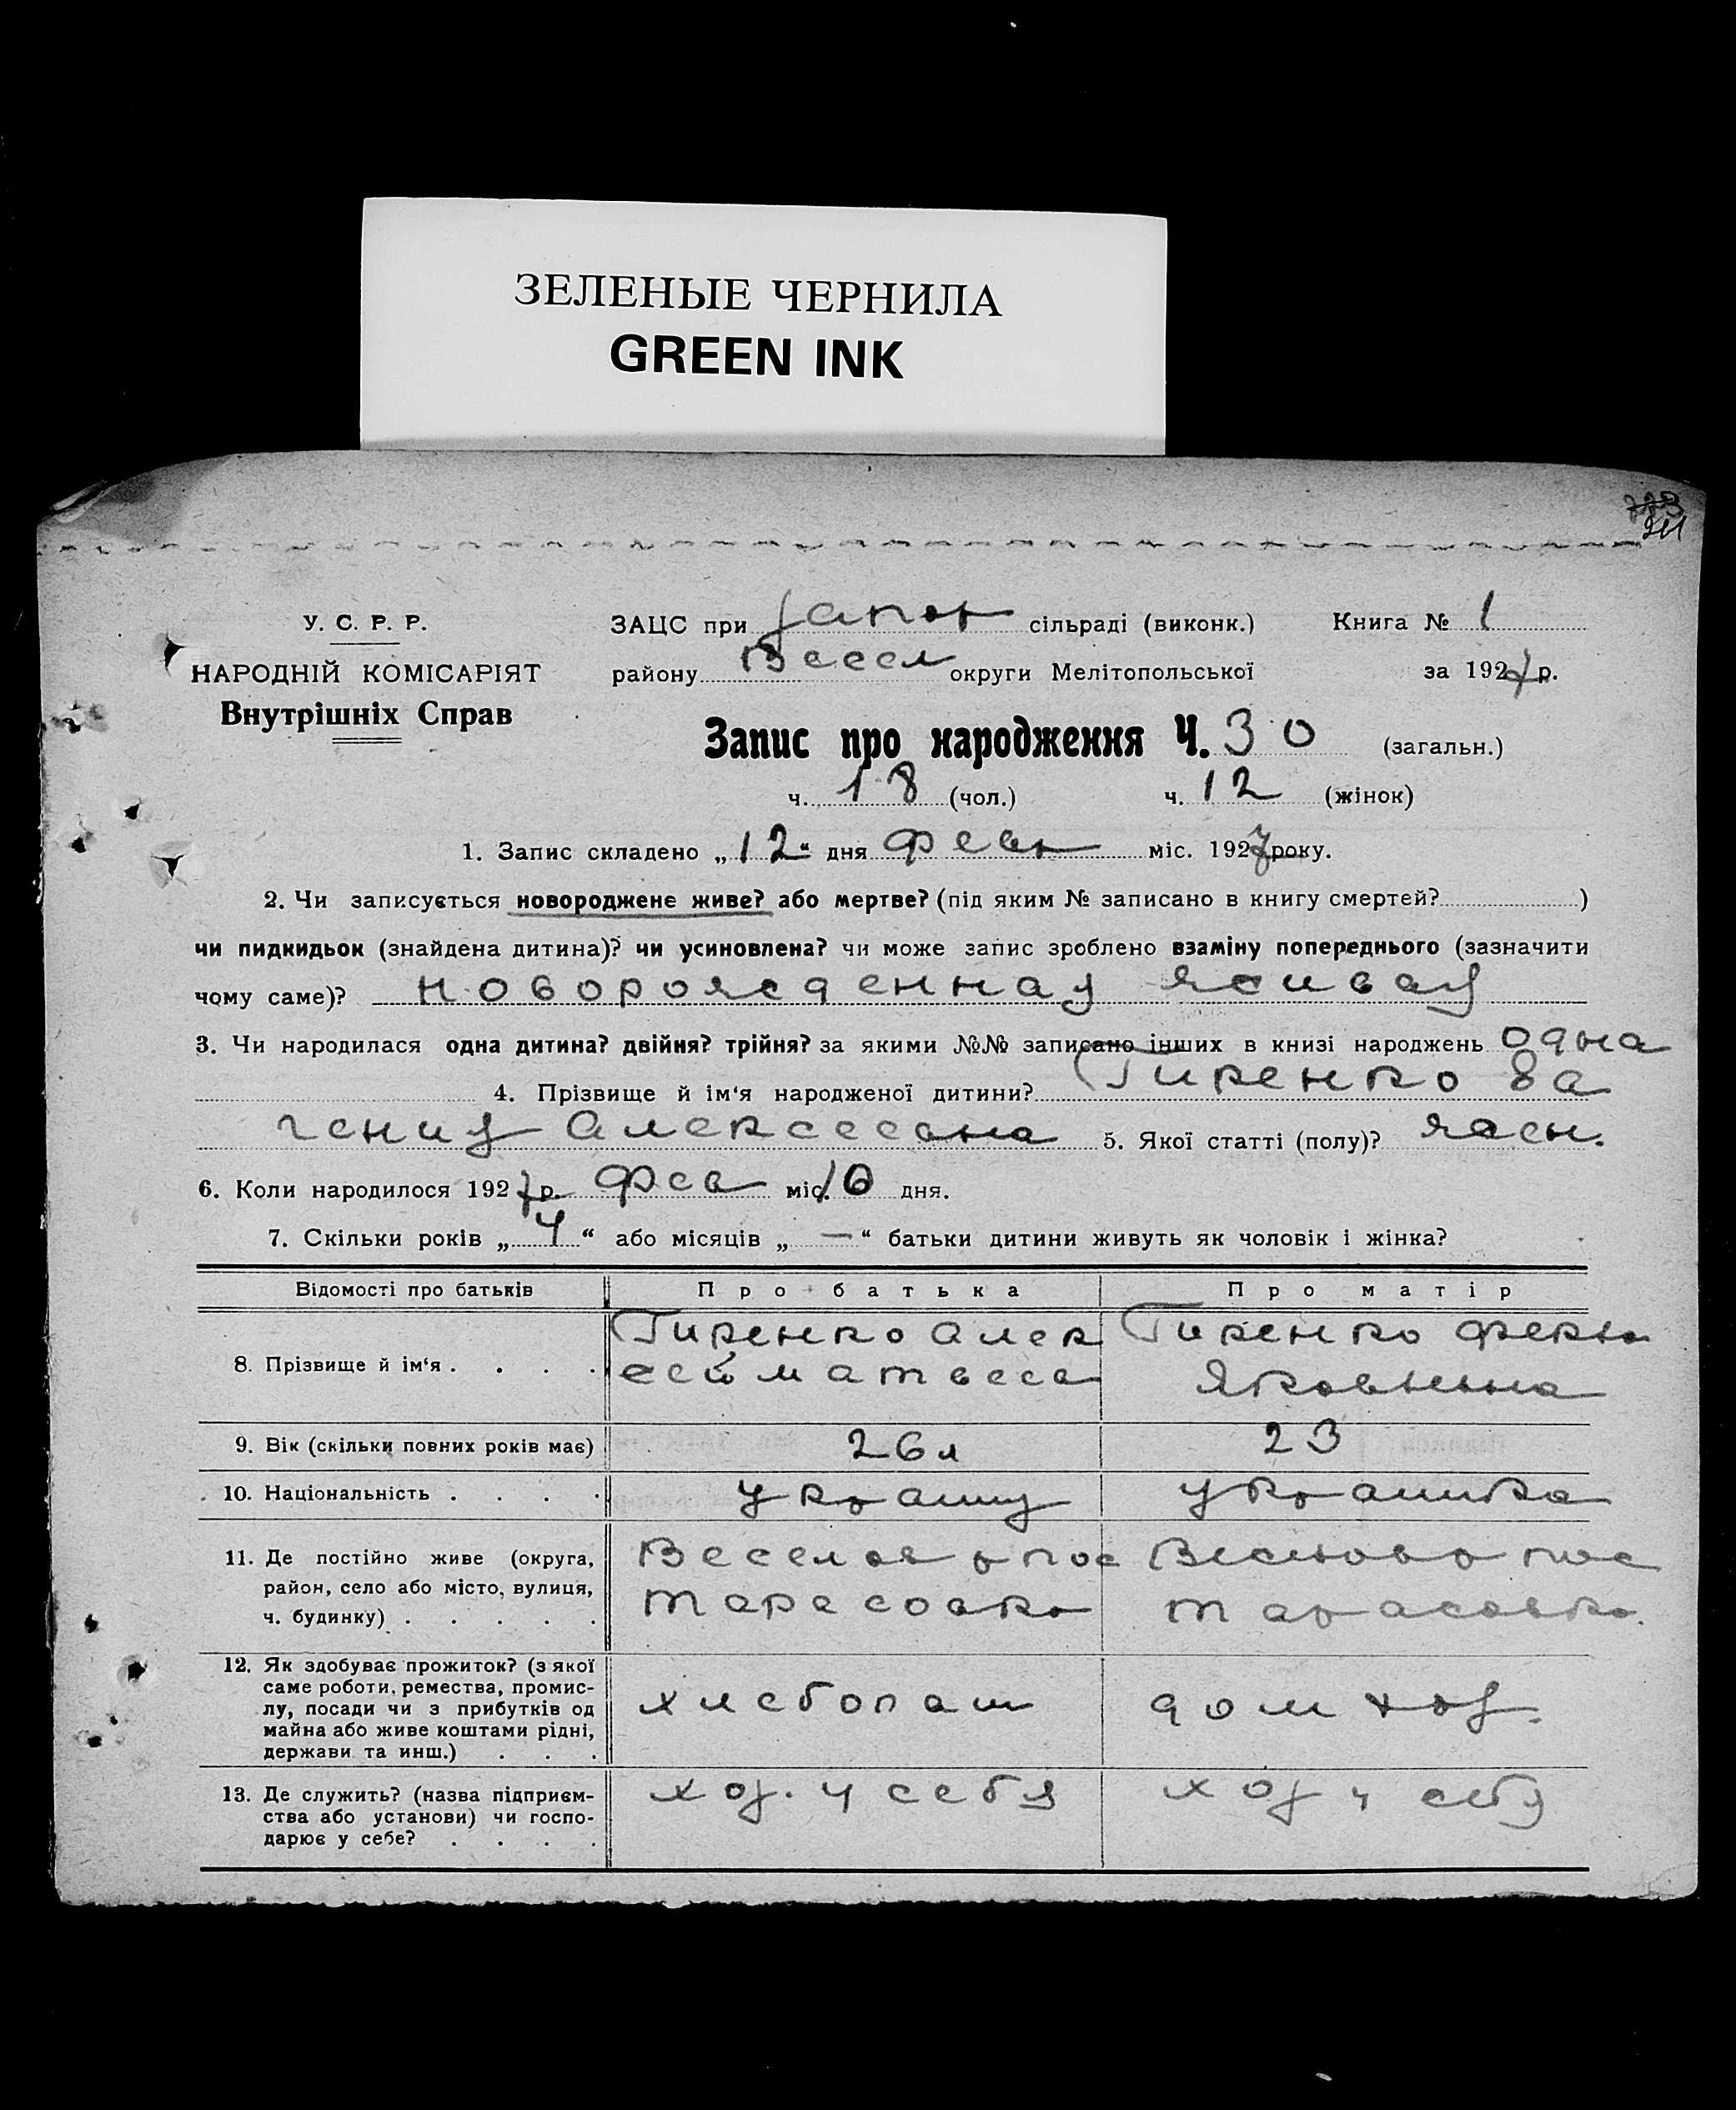 ЗЕЛЕНЫЕ ЧЕРНИЛА
GREEN INK
У. С. Р. Р.
НАРОДНІЙ КОМІСАРІЯТ
Внутрішніх Справ
ЗАЦС при Запор сільраді (виконк.) Книга № 1
району Весел округи Мелітопольської за 1927 р.
Запис про народження Ч. 30 (загальн.)
ч. 18 (чол.) ч. 12 (жінок)
1. Запис складено „12“ дня февр міс. 1927 року.
2. Чи записується новороджене живе? або мертве? (під яким № записано в книгу смертей? )
чи пидкидьок (знайдена дитина)? чи усиновлена? чи може запис зроблено взаміну попереднього (зазначити
чому саме)? новорожденная живая
3. Чи народилася одна дитина? двійня? трійня? за якими №№ записано інших в книзі народжень одна
4. Прізвище й ім‘я народженої дитини? Гиренко Ев
гения Алексеевна 5. Якої статті (полу)? женск.
6. Коли народилося 1927 р. Фев міс. 10 дня.
7. Скільки років „4“ або місяців „—“ батьки дитини живуть як чоловік і жінка?
Відомості про батьків Про батька Про матір
8. Прізвище й ім‘я . . . . Гиренко Алек
сей Матвеев Гиренко Фекла
Яковлевна
9. Вік (скільки повних років має) 26 л 23
10. Національність . . . . украинц украинка
11. Де постійно живе (округа,
район, село або місто, вулиця,
ч. будинку) . . . . .
Веселов р пос
Тарасовка
Веселов р пос
Тарасовка.
12. Як здобуває прожиток? (з якої
саме роботи, ремества, промис-
лу, посади чи з прибутків од
майна або живе коштами рідні,
держави та инш.) . . .
хлебопаш дом хоз.
13. Де служить? (назва підприєм-
ства або установи) чи госпо-
дарює у себе? . . . .
хоз. у себя хоз у себя